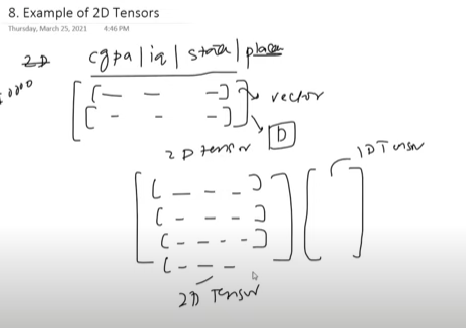 8. Example of 2D Tensors
Thursday, March 25, 2021 4:46 PM
2D cgpa | iq | state | place
vector
b
2D tensor
1D Tensor
2D Tensor